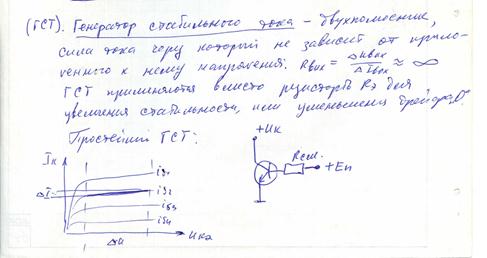 (ГСТ). Генератор стабильного тока - двухполюсник,
сила тока через который не зависит от прило-
женного к нему напряжения. Rвых = ΔUвых / ΔIвых ≈ ∞
ГСТ применяются вместо резисторов Rэ для
увеличения стабильности, или уменьшения дрейфа
Простейший ГСТ:
Iк
ΔI
iб1
iб2
iб3
iб4
ΔU
Uкэ
+Uк
Rсм.
+Еп